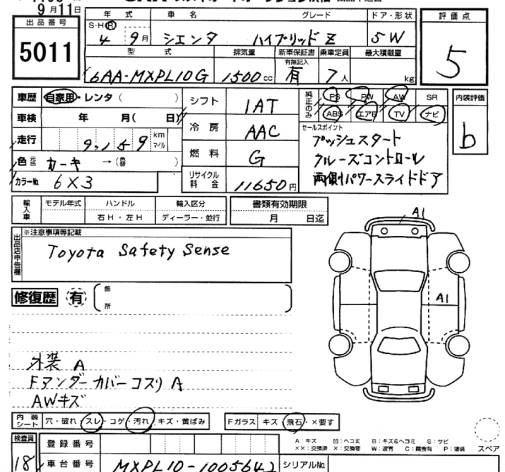 9月11日
出品番号
5011
年式 車名 グレード ドア・形状
S・H・R
4年9月 シエンタ ハイブリッドZ 5W
型式 排気量 新車保証書 乗車定員 最大積載量
有無記入
6AA-MXPL10G 1500cc 有 7人 kg
評価点
5
車歴 自家用・レンタ( )
車検 年 月( 日)
走行 9,159 km マイル
色 カーキ → ( )
カラーNo. 6X3
シフト 1AT
冷房 AAC
燃料 G
リサイクル料金 11650円
純正のみ PS PW AW SR
ABS エアB TV ナビ
セールスポイント
プッシュスタート
クルーズコントロール
両側パワースライドドア
内装評価
b
輸入車 モデル年式 ハンドル 輸入区分 書類有効期限
右H・左H ディーラー・並行 月 日迄
出品店申告欄
※注意事項等記載
Toyota Safety Sense
修復歴 有 箇所
A1
A1
外装 A
Fアンダーカバーコスリ A
AWキズ
内装シート 穴・破れ・スレ・コゲ・汚れ・キズ・黄ばみ Fガラス キズ・飛石・×要す
検査員
18
登録番号
車台番号 MXPL10-1005642 シリアルNo.
A:キズ B:キズ&ヘコミ S:サビ
××:交換済 ×:交換要 W:波有 C:腐食有 P:塗装
スペア